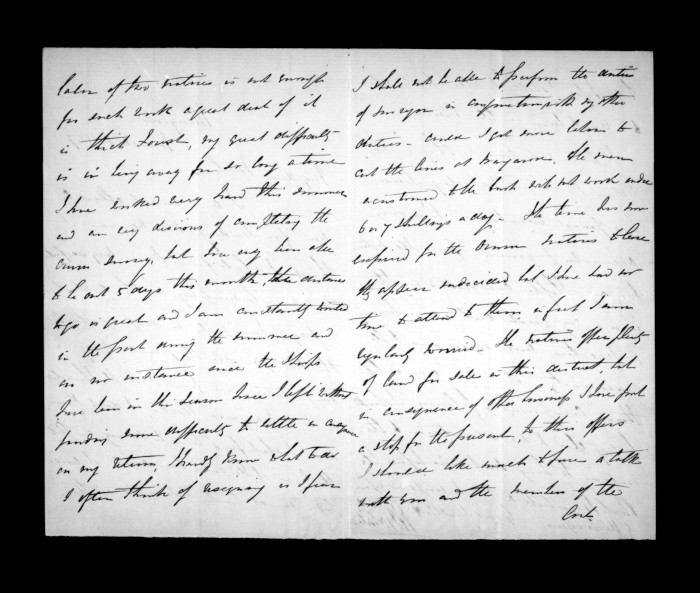 labor of two natives is not enough
for such work a great deal of it
is thick bush, my great difficulty
is in being away for so long a time
I have worked very hard this summer
and am very desirous of completing the
survey, but have only been able
to be out 5 days this month, the distance
to go is great and I am constantly wanted
in the post during the summer and
in no instance since the Ships
have been in this season have I left without
finding some difficulty to settle in
on my return, I hardly know what to do
I often think of resigning as I fear
I shall not be able to perform the duties
of surveyor in conjunction with my other
duties - could I get some labor to
cut the lines at the men
accustomed to the bush will not work under
6 or 7 shillings a day - The time has now
expired for the natives to leave
they appear undecided but I have had no
time to attend to them, in fact I am
regularly worried - The natives offer plenty
of land for sale in this district, but
in consequence of other business I have put
a stop for the present, to their offers
I should like much to have a talk
with you and the members of the